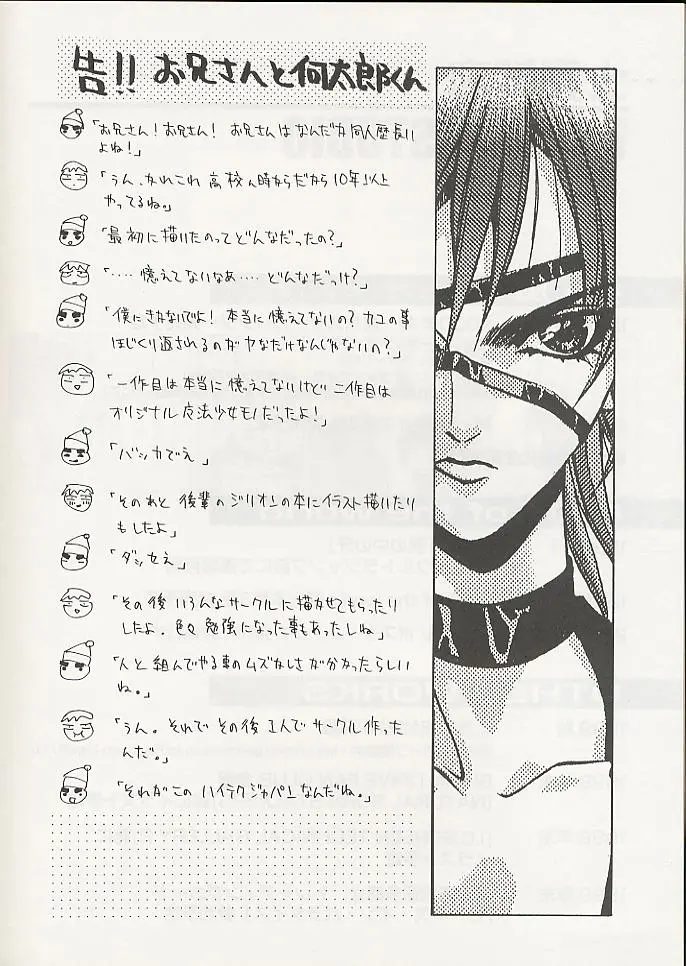 告!! お兄さんと何太郎くん
「お兄さん!お兄さん! お兄さんはなんだカ同人歴長い
よね!」
「うん、かれこれ 高校ん時からだから10年以上
やってるね。」
「最初に描いたのってどんなだったの?」
「‥‥憶えてないなあ‥‥どんなだっけ?」
「僕にきかないでよ! 本当に憶えてないの? カコの事
ほじくり返されるのがヤなだけなんじゃないの?」
「一作目は本当に憶えてないけど 二作目は
オリジナル魔法少女モノだったよ!」
「バッカでえ」
「そのあと 後輩のジリオンの本にイラスト描いたり
もしたよ」
「ダッセえ」
「その後 いろんなサークルに描かせてもらったり
したよ.色々勉強になった事もあったしね」
「人と組んでやる事のムズかしさが分かったらしい
ね。」
「うん。それで その後 1人で サークル作った
んだ。」
「それがこの ハイテクジャパンなんだね。」